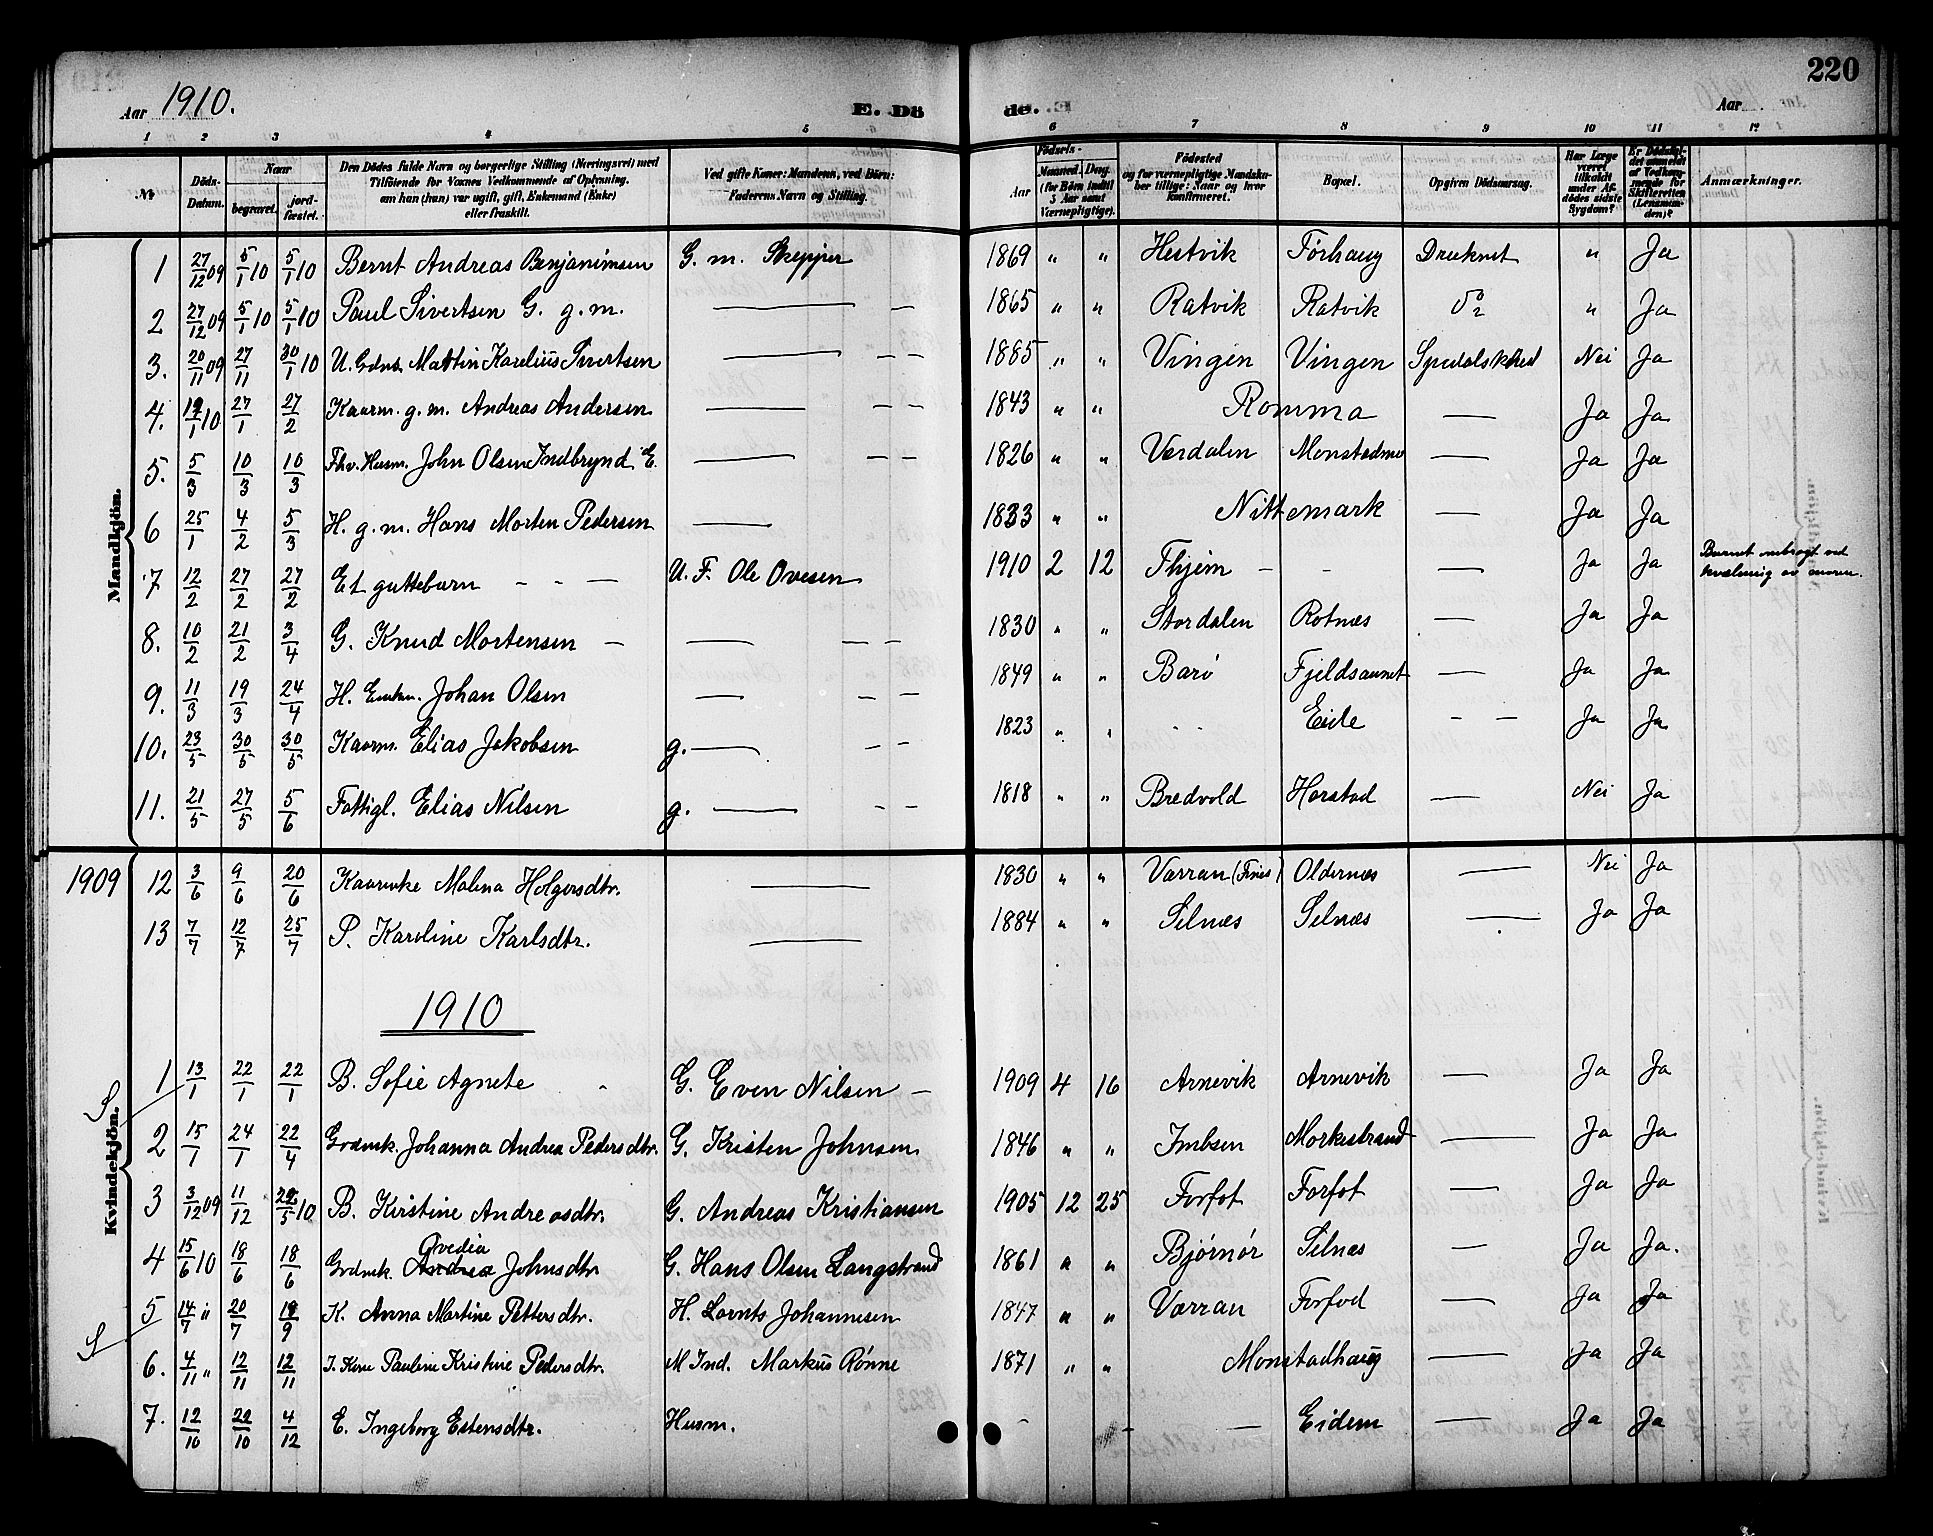 Aar 1910. E. Döde. Aar 220
1 2 3 4 5 6 7 8 9 10 11 12
No. Döds-Datum. Naar begravet. jordfæstet. Den Dödes fulde Navn og borgerlige Stilling (Næringsvei) med Tilföiende for Voxnes Vedkommende af Oplysning, om han (hun) var ugift, gift, Enkemand (Enke) eller fraskilt. Ved gifte Koner: Mandens, ved Börn: Faderens Navn og Stilling. Födsels- Aar Maaned. Dag. (for Börn indtil 5 Aar samt Værnepligtige). Födested og for værnepligtige Mandskaber tillige: Naar og hvor konfirmeret. Bopæl. Opgiven Dödsaarsag. Har Læge været tilkaldt under Afdödes sidste Sygdom? Er Dödsfaldet anmeldt af Vedkommende for Skifteretten (Lensmanden)? Anmærkninger.
Mandkjön.
1 27/12 09 5/1 10 5/1 10 Bernt Andreas Benjaminsen G. m. Skepper 1869 " " Hestvik Førhaug Druknet " Ja
2 27/12 09 5/1 10 5/1 10 Paul Sivertsen G. g. m. — — 1865 " " Ratvik Ratvik do " Ja
3. 20/11 09 27/11 30/1 10 U. Gdms. Martin Karelius Sivertsen — — – 1885 " " Vingen Vingen Spedalskhed Nei Ja
4. 19/1 10 27/1 27/2 Kaarm. g. m. Andreas Andersen — — – 1843 " " Romma — Ja Ja
5. 5/3 10/3 10/3 Fhv. Husm. John Olsen Indbrynd E. — — – 1826 " " Værdalen Monstadmo — Ja Ja
6 25/1 4/2 5/3 H. g. m. Hans Morten Pedersen — 1833 " " Nittemark — Ja Ja
7 12/2 27/2 27/2 Et guttebarn – – — U. F. Ole Ovesen 1910 2 12 Fhjem – – — Ja Ja Barnet ombragt ved kvælning av moren.
8. 10/2 21/2 3/4 G. Knud Mortensen – — — – 1830 " " Stordalen Rotnæs — Ja Ja
9. 11/3 19/3 24/4 H. Enkm. Johan Olsen — – — 1849 " " Barø Fjeldsaunet — Ja Ja
10. 23/5 30/5 30/5 Kaarm. Elias Jakobsen g. — – – 1823 " " " " Eide – – Ja Ja
11. 21/5 27/5 5/6 Fattigl. Elias Nilsen g. — – – 1818 " " Bredvold Harstad — Nei Ja
1909 12 3/6 9/6 20/6 Kaarenke Malena Holgersdtr. — 1830 " " Værran (Fines) Oldernæs — Nei Ja
13 7/7 12/7 25/7 P. Karoline Karlsdtr. — 1884 " " Selnæs Selnæs — Ja Ja
1910
Kvindekjön.
S 1 13/1 22/1 22/1 B. Sofie Agnete G. Even Nilsen – 1909 4 16 Arnevik Arnevik — Ja Ja
2 15/1 24/1 22/4 Grdmk. Johanna Andrea Pedersdtr. G. Kristen Johnsen 1846 " " Imbsen Morkestrand — Ja Ja
3 3/12 09 11/12 22/5 10 B. Kirstine Andreasdtr. G. Andreas Kristiansen 1905 12 25 Forfot Forfot — Ja Ja
4 15/6 10 18/6 18/6 Grdmk. Andrea Johnsdtr. G. Hans Olsen Langstrand 1861 " " Bjørnør Selnæs — Ja Ja.
S 5 14/7 " 20/7 19/9 K. Anna Martine Pettersdtr. H. Lornts Johannesen 1847 " " Værran Forfod — Ja Ja
6. 4/11 " 12/11 12/11 I. Kone Pauline Kristine Pedersdtr. M Ind. Markus Rønne 1871 " " Monstadhaug — Ja Ja
7. 12/10 22/10 4/12 E. Ingeborg Estensdtr. Husm. – – — Eidem — Ja Ja